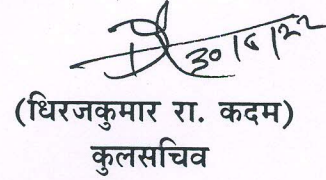 30/6/22
(धिरजकुमार रा. कदम)
कुलसचिव